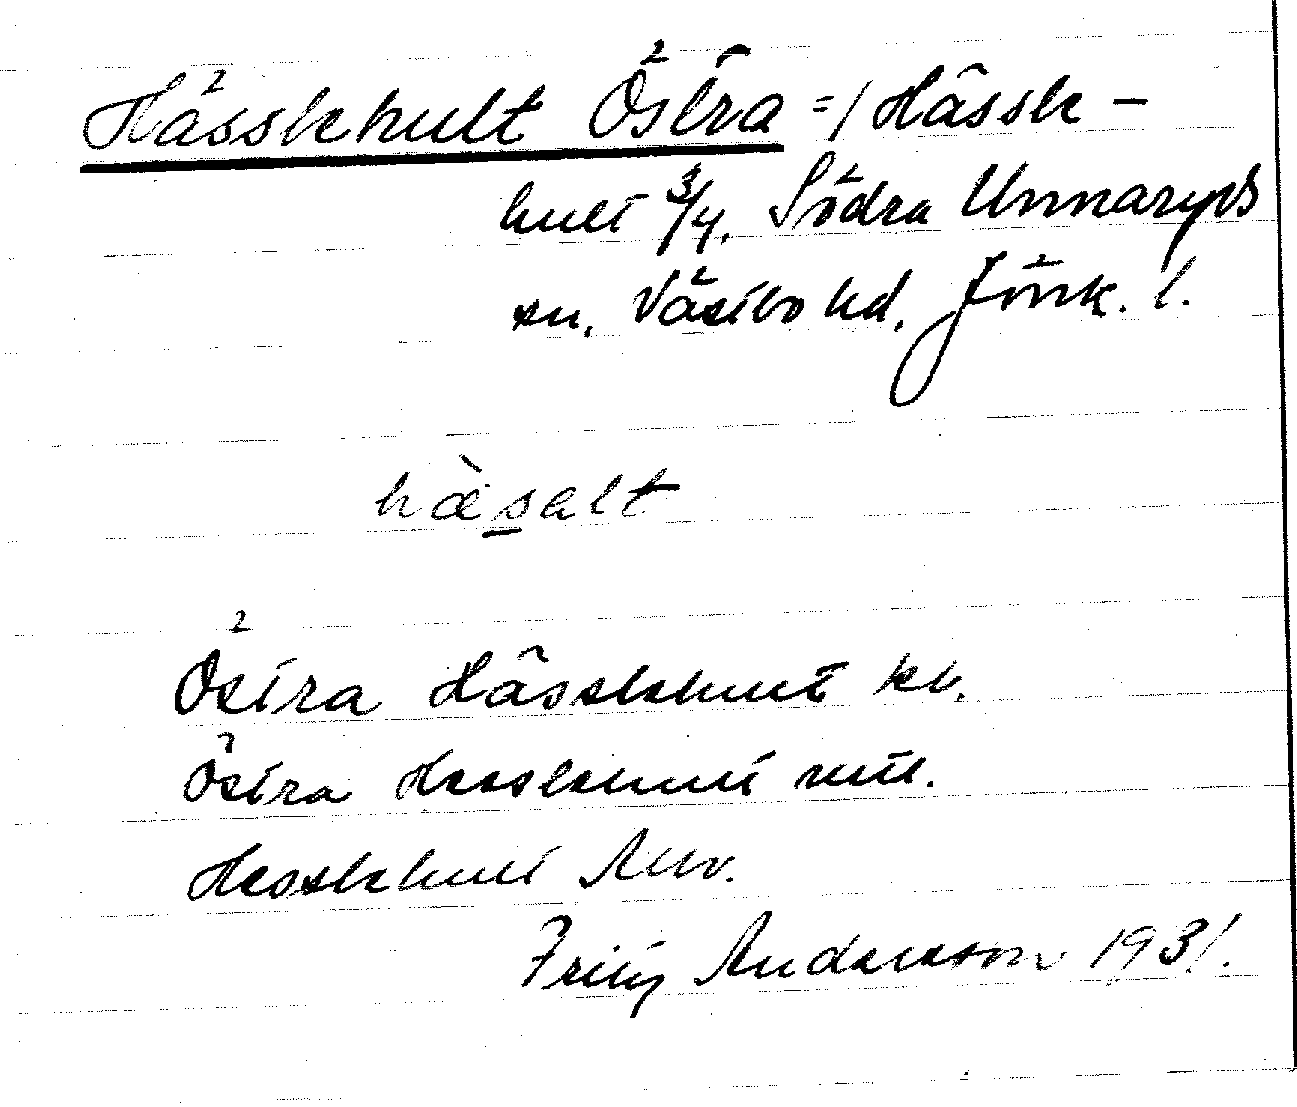 Hässlehult Östra =/ Hässle-
hult 3/4. Södra Unnaryds
sn. Västbo hd. Jönk. l.
hæ̀salt
Östra Hässlehult kb.
Östra Hesslehult
Hesslehult
Fritz Andersson 1931.